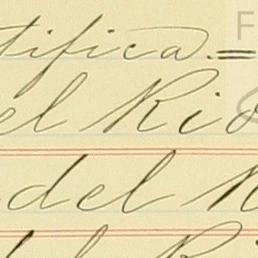 tifica. =
el Rio
del R
del R